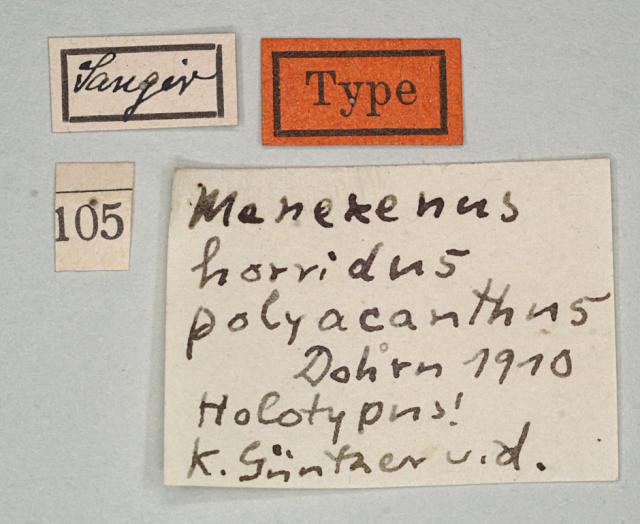 Sangir
Type
105
Menexenus
horridus
polyacanthus
Dohrn 1910
Holotypus!
K. Günther vid.